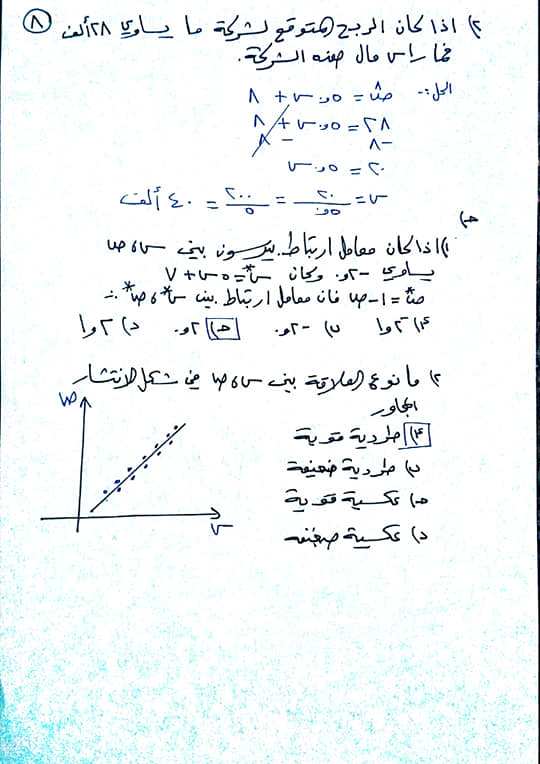 ٨
٢) اذا كان الربح المتوقع لشركة ما يساوي ٢٨ ألف
فما راس مال هذه الشركة.
الحل:- صَ = ٥و.س + ٨
٢٨ = ٥و.س + ٨
-٨ -٨
٢٠ = ٥و.س
س = ٢٠/٥و. = ٢٠٠/٥ = ٤٠ ألف
ج)
١) اذا كان معامل ارتباط بيرسون بين س، ص
يساوي -٢و. وكان س* = ٥س + ٧
ص* = ١ - ص فان معامل ارتباط بين س*، ص* :-
أ) -٢و١ ب) -٢و. ج) ٢و. د) ٢و١
٢) ما نوع العلاقة بين س، ص في شكل الانتشار
المجاور
أ) طردية قوية
ب) طردية ضعيفة
ج) عكسية قوية
د) عكسية ضعيفه
ص
س